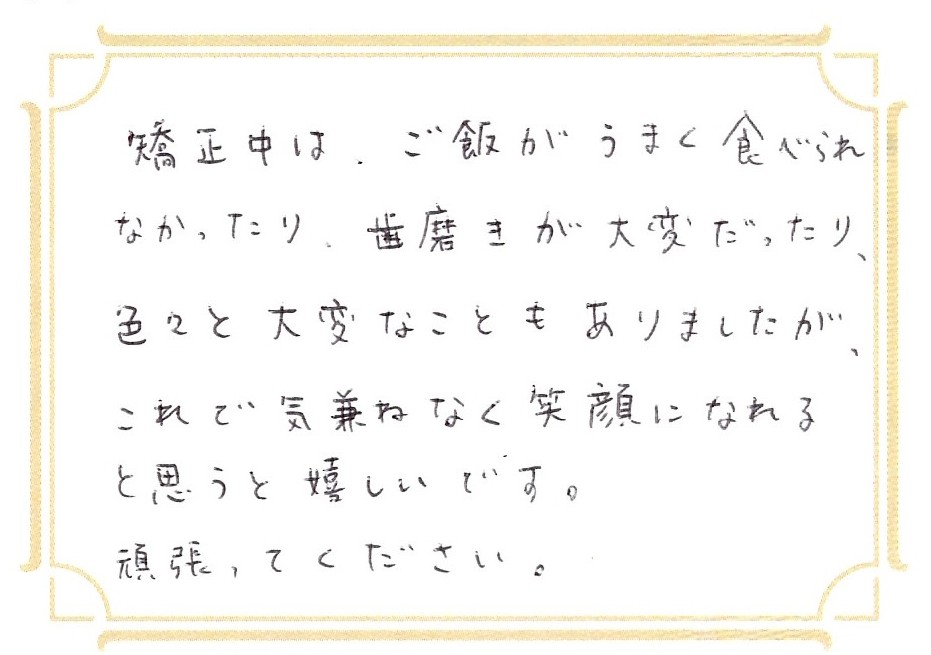 矯正中は、ご飯がうまく食べられ
なかったり、歯磨きが大変だったり、
色々と大変なこともありましたが、
これで気兼ねなく笑顔になれる
と思うと嬉しいです。
頑張ってください。